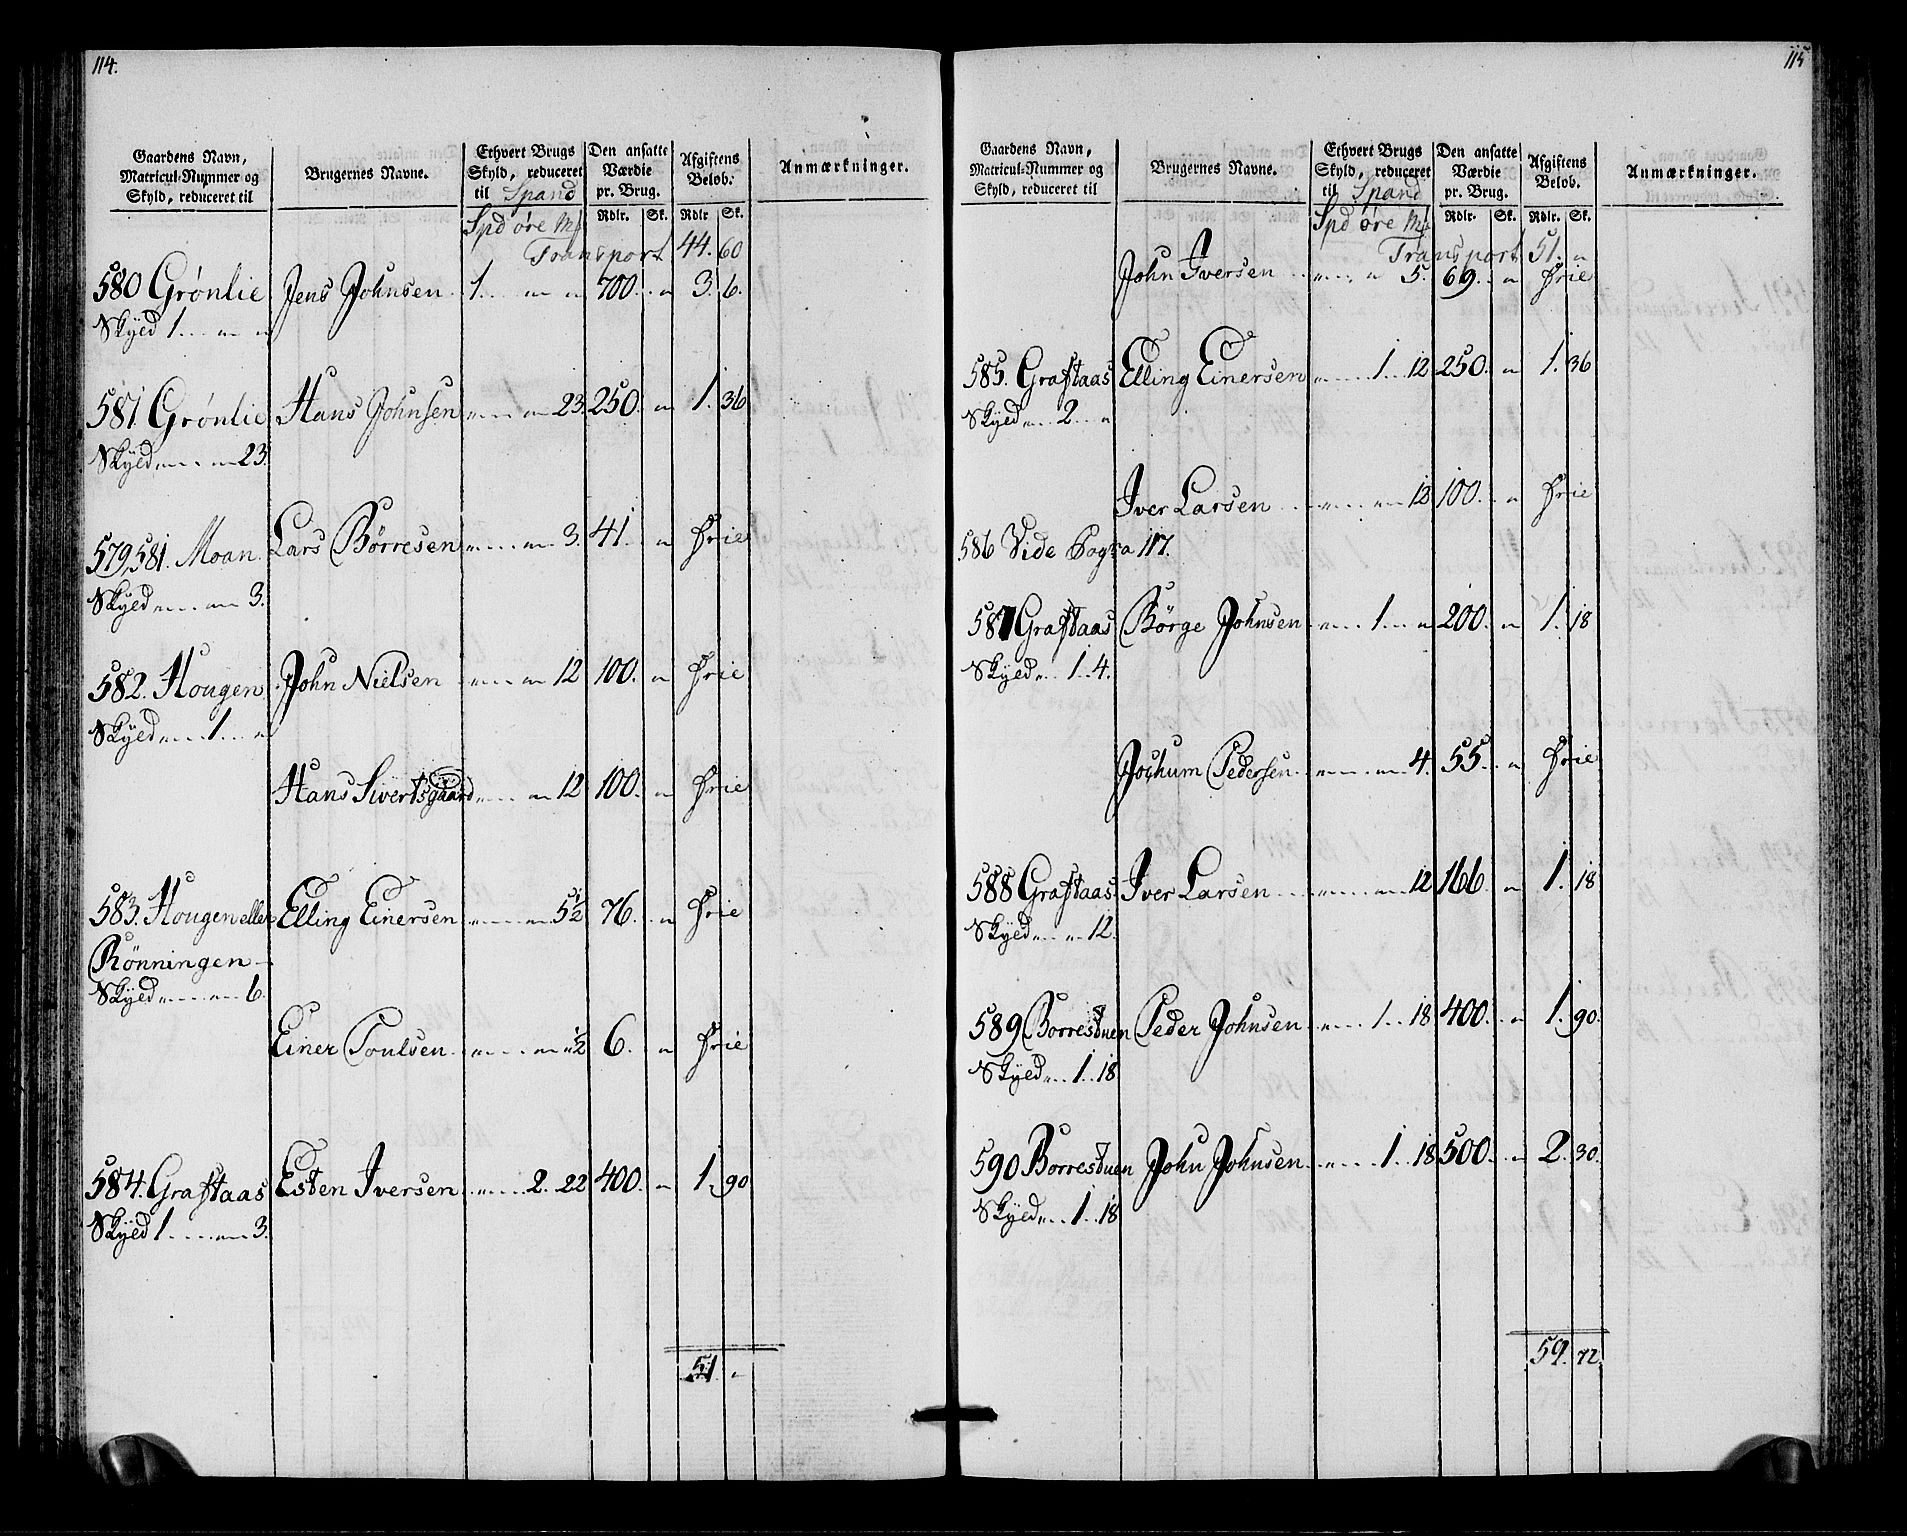 114.
Gaardens Navn, Matricul-Nummer og Skyld, reduceret til
Brugernes Navne.
Ethvert Brugs Skyld, reduceret til Spand
Den ansatte Værdie pr. Brug.
Afgiftens Beløb.
Anmærkninger.
Spd øre Mf Rdlr. Sk. Rdlr Sk.
Transport 44. 60
580 Grönlie Jens Johnsen 1. " " 700. " 3. 6.
Skyld 1 " "
581. Grönlie Hans Johnsen " " 23. 250. " 1. 36
Skyld " " 23.
579, 581. Moan Lars Börresen " " 3. 41. " Frie
Skyld " " 3.
582. Hougen John Nielsen " " 12 100. " Frie
Skyld " 1 "
Hans Sivertsgaard " " 12 100. " Frie
583. Hougen eller Elling Einersen " " 5½ 76. " Frie
Rönningen
Skyld " " 6.
Einer Poulsen " " ½ 6. " Frie
584. Graftaas Esten Iversen " 2. 22 400. " 1. 90
Skyld 1 " 3.
51 "
115
Gaardens Navn, Matricul-Nummer og Skyld, reduceret til
Brugernes Navne.
Ethvert Brugs Skyld, reduceret til Spand
Den ansatte Værdie pr. Brug.
Afgiftens Beløb.
Anmærkninger.
Spd øre Mf Rdlr. Sk. Rdlr. Sk.
Transport 51. "
John Iversen " " 5. 69. " Frie
585. Graftaas Elling Einersen " 1. 12 250. " 1. 36
Skyld " 2 "
Iver Larsen " " 12 100. " Frie
586 Vide Pagina 117.
587 Graftaas Börge Johnsen " 1. " 200. " 1. 18
Skyld " 1. 4.
Jochum Pedersen " " 4. 55. " Frie
588 Graftaas Iver Larsen " " 12 166. " 1. 18
Skyld " " 12.
589 Borresduen Peder Johnsen " 1. 18 400. " 1. 90.
Skyld " 1. 18
590 Borresduen John Johnsen " 1. 18 500. " 2. 30.
Skyld " 1. 18
59. 72.